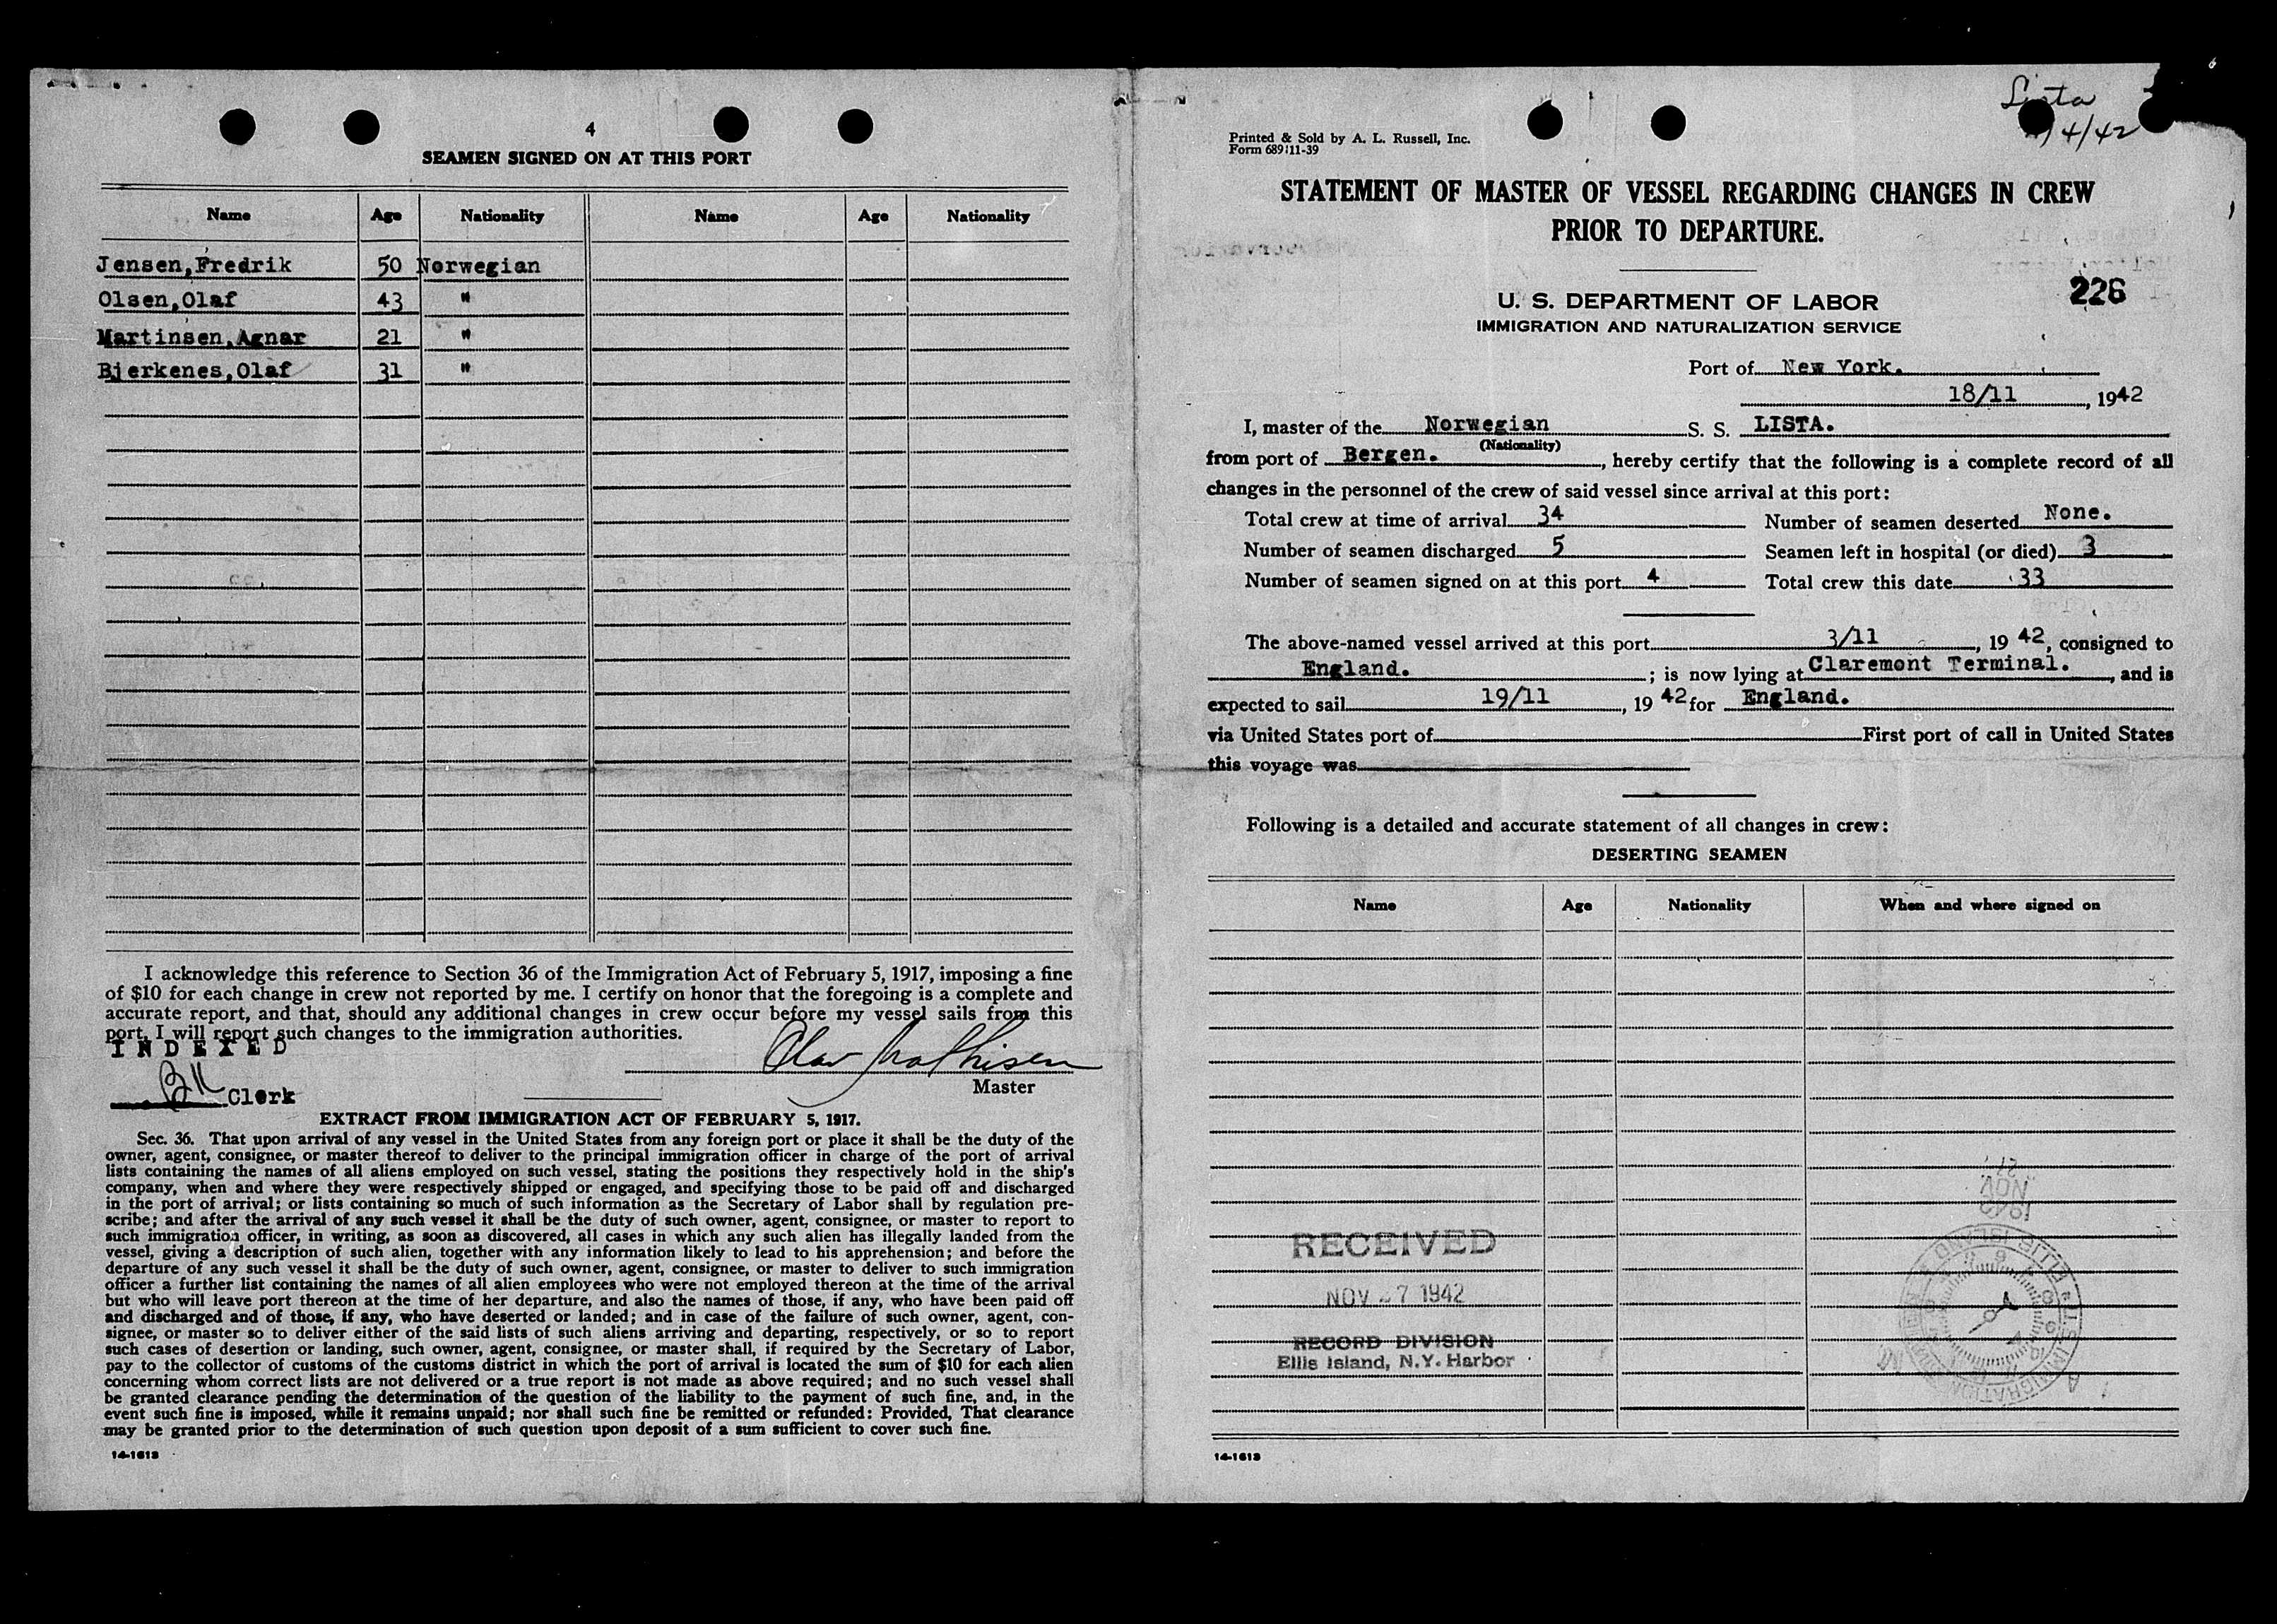 4
SEAMEN SIGNED ON AT THIS PORT
Name Age Nationality Name Age Nationality
Jensen,Fredrik 50 Norwegian
Olsen,Olaf 43 "
Martinsen,Agnar 21 "
Bjerkenes,Olaf 31 "
I acknowledge this reference to Section 36 of the Immigration Act of February 5, 1917, imposing a fine
of $10 for each change in crew not reported by me. I certify on honor that the foregoing is a complete and
accurate report, and that, should any additional changes in crew occur before my vessel sails from this
port, I will report such changes to the immigration authorities.
INDEXED
Olav Mathisen
Master
Clerk
EXTRACT FROM IMMIGRATION ACT OF FEBRUARY 5, 1917.
Sec. 36. That upon arrival of any vessel in the United States from any foreign port or place it shall be the duty of the
owner, agent, consignee, or master thereof to deliver to the principal immigration officer in charge of the port of arrival
lists containing the names of all aliens employed on such vessel, stating the positions they respectively hold in the ship's
company, when and where they were respectively shipped or engaged, and specifying those to be paid off and discharged
in the port of arrival; or lists containing so much of such information as the Secretary of Labor shall by regulation pre-
scribe; and after the arrival of any such vessel it shall be the duty of such owner, agent, consignee, or master to report to
such immigration officer, in writing, as soon as discovered, all cases in which any such alien has illegally landed from the
vessel, giving a description of such alien, together with any information likely to lead to his apprehension; and before the
departure of any such vessel it shall be the duty of such owner, agent, consignee, or master to deliver to such immigration
officer a further list containing the names of all alien employees who were not employed thereon at the time of the arrival
but who will leave port thereon at the time of her departure, and also the names of those, if any, who have been paid off
and discharged and of those, if any, who have deserted or landed; and in case of the failure of such owner, agent, con-
signee, or master so to deliver either of the said lists of such aliens arriving and departing, respectively, or so to report
such cases of desertion or landing, such owner, agent, consignee, or master shall, if required by the Secretary of Labor,
pay to the collector of customs of the customs district in which the port of arrival is located the sum of $10 for each alien
concerning whom correct lists are not delivered or a true report is not made as above required; and no such vessel shall
be granted clearance pending the determination of the question of the liability to the payment of such fine, and, in the
event such fine is imposed, while it remains unpaid; nor shall such fine be remitted or refunded: Provided, That clearance
may be granted prior to the determination of such question upon deposit of a sum sufficient to cover such fine.
14-1613
Lista
4/42
Printed & Sold by A. L. Russell, Inc.
Form 689 11-39
STATEMENT OF MASTER OF VESSEL REGARDING CHANGES IN CREW
PRIOR TO DEPARTURE.
226
U. S. DEPARTMENT OF LABOR
IMMIGRATION AND NATURALIZATION SERVICE
Port of New York.
18/11, 1942
I, master of the Norwegian S. S. LISTA.
(Nationality)
from port of Bergen., hereby certify that the following is a complete record of all
changes in the personnel of the crew of said vessel since arrival at this port:
Total crew at time of arrival 34 Number of seamen deserted None.
Number of seamen discharged 5 Seamen left in hospital (or died) 3
Number of seamen signed on at this port 4 Total crew this date 33
The above-named vessel arrived at this port 3/11, 19 42, consigned to
England.; is now lying at Claremont Terminal., and is
expected to sail 19/11, 19 42 for England.
via United States port of First port of call in United States
this voyage was
Following is a detailed and accurate statement of all changes in crew:
DESERTING SEAMEN
Name Age Nationality When and where signed on
RECEIVED
NOV 27 1942
RECORD DIVISION
Ellis Island, N.Y. Harbor
14-1613